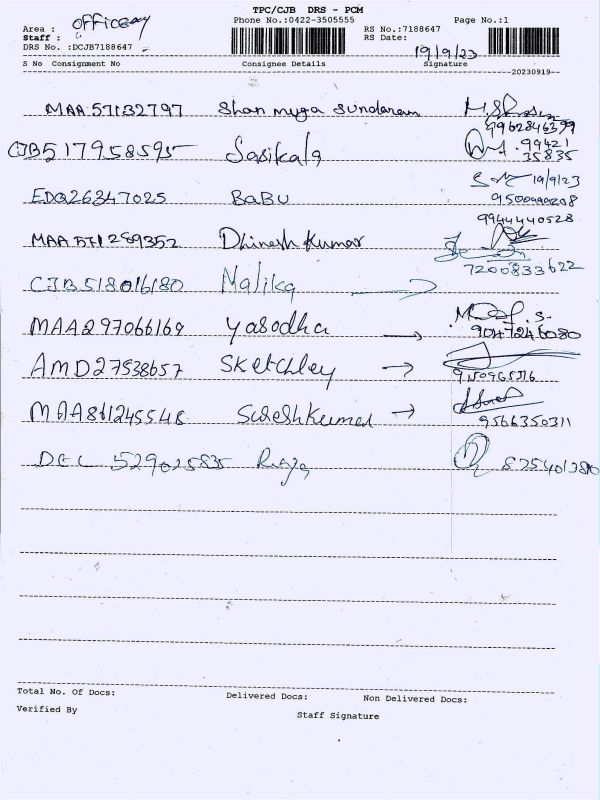 TPC/CJB DRS - PCM
Phone No.:0422-3505555 Page No.:1
Area :
Staff :
RS No.:7188647
DRS No. :DCJB7188647 RS Date: 19/9/23
S No Consignment No Consignee Details Signature
20230919
MAA 571132797 Shanmuga Sundaram
9962846399
CJB517958595 Sasikala 99421
35835
19/9/23
EDQ26347025 BaBU
9944440528
Dhinesh Kumar
7200833622
CJB518016180 Malika
MAA297066169 Yasodha 9047246080
AMD27538657 Sketchley
MAA861245548 SureshKumar 9566350311
DEL 529025835
Total No. Of Docs: Delivered Docs: Non Delivered Docs:
Verified By Staff Signature